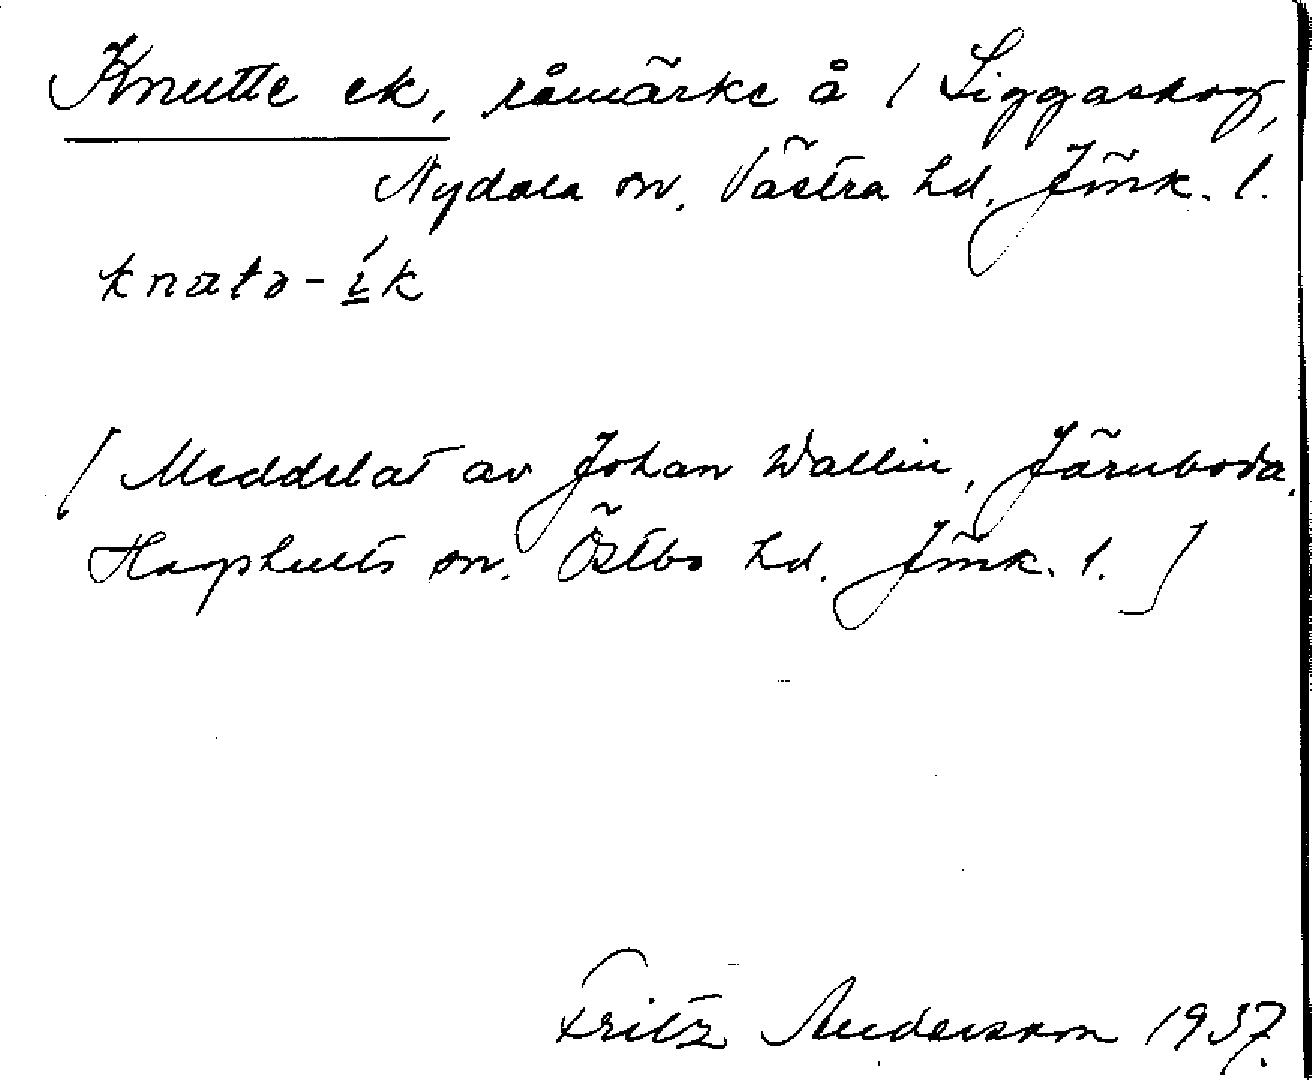 Knutte ek, råmärke å 1 Siggaskog,
Nydala sn. Västra hd. Jönk. l.
[Meddelat av Johan Wallin, Järnboda.
Hagshults sn. Östbo hd. Jönk. l.]
Fritz Andersson 1937.